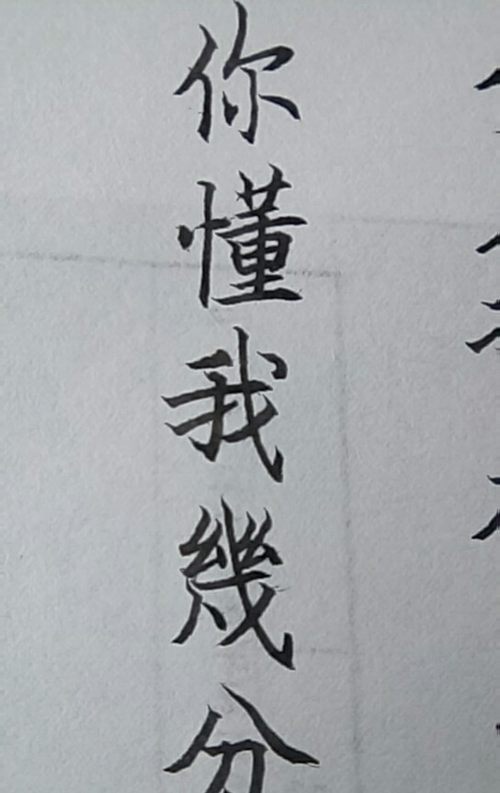 你懂我幾分